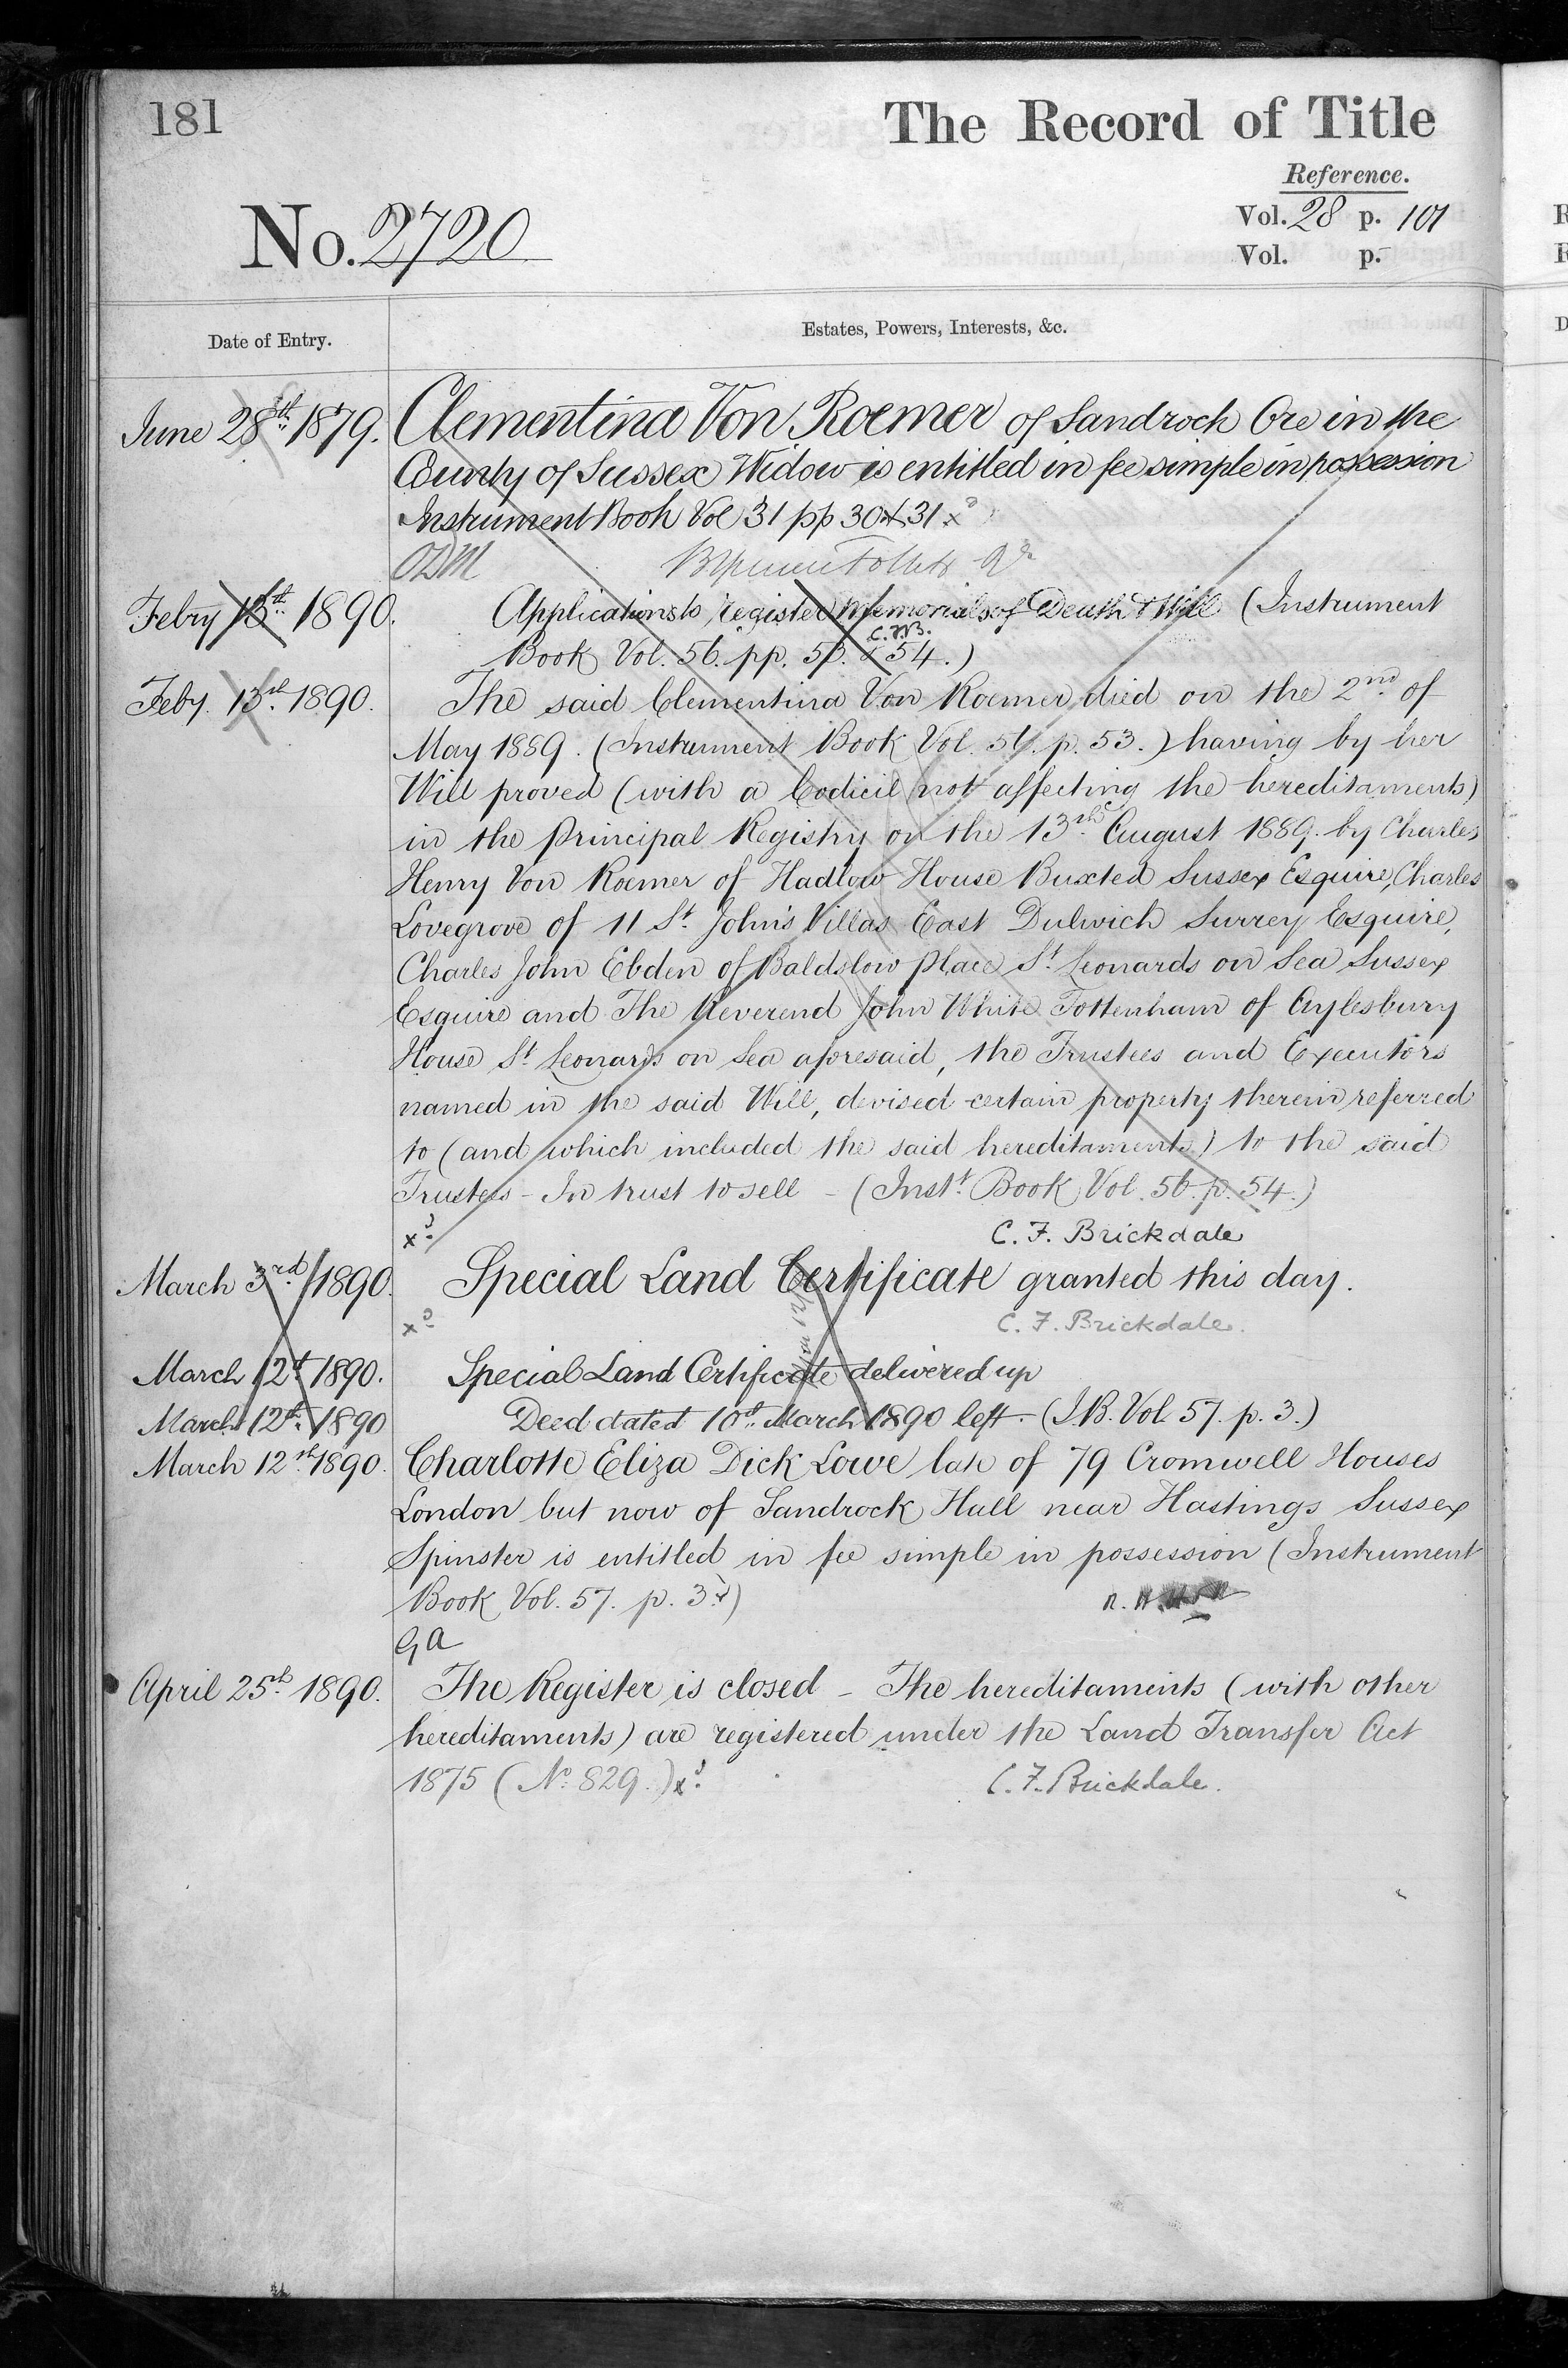 181
The Record of Title
Reference.
No. 2720
Vol. 28 p. 101
Vol. p.
Date of Entry.
Estates, Powers, Interests, &c.
June 28th 1879. Clementina Von Roemer of Sandrock Ore in the
County of Sussex Widow is entitled in fee simple in possession
Instrument Book Vol 31 pp 30 & 31 xd
ODM
Febry 13th 1890. Applications to register Memorials of Death & Will (Instrument
C.F.B.
Book Vol. 56. pp. 53. & 54.)
Feby. 13th 1890. The said Clementina Von Roemer died on the 2nd of
May 1889. (Instrument Book Vol. 56. p. 53.) having by her
Will proved (with a Codicil not affecting the hereditaments)
in the Principal Registry on the 13th August 1889. by Charles
Henry Von Roemer of Hadlow House Buxted Sussex Esquire, Charles
Lovegrove of 11 St. John's Villas East Dulwich Surrey Esquire,
Charles John Ebden of Baldslow Place St. Leonards on Sea Sussex
Esquire and The Reverend John White Tottenham of Aylesbury
House St. Leonards on Sea aforesaid, the Trustees and Executors
named in the said Will, devised certain property therein referred
to (and which included the said hereditaments) to the said
Trustees - In trust to sell - (Instt. Book Vol. 56. p. 54.)
xd C. F. Brickdale
March 3rd 1890. Special Land Certificate granted this day.
xd C. F. Brickdale.
March 12th 1890. Special Land Certificate delivered up
March 12th 1890 Deed dated 10th March 1890 left - (I.B. Vol. 57. p. 3.)
March 12th 1890. Charlotte Eliza Dick Lowe late of 79 Cromwell Houses
London but now of Sandrock Hall near Hastings Sussex
Spinster is entitled in fee simple in possession (Instrument
Book Vol. 57. p. 3xd)
GA
April 25th 1890. The Register is closed - The hereditaments (with other
hereditaments) are registered under the Land Transfer Act
1875 (No. 829.) xd. C. F. Brickdale.